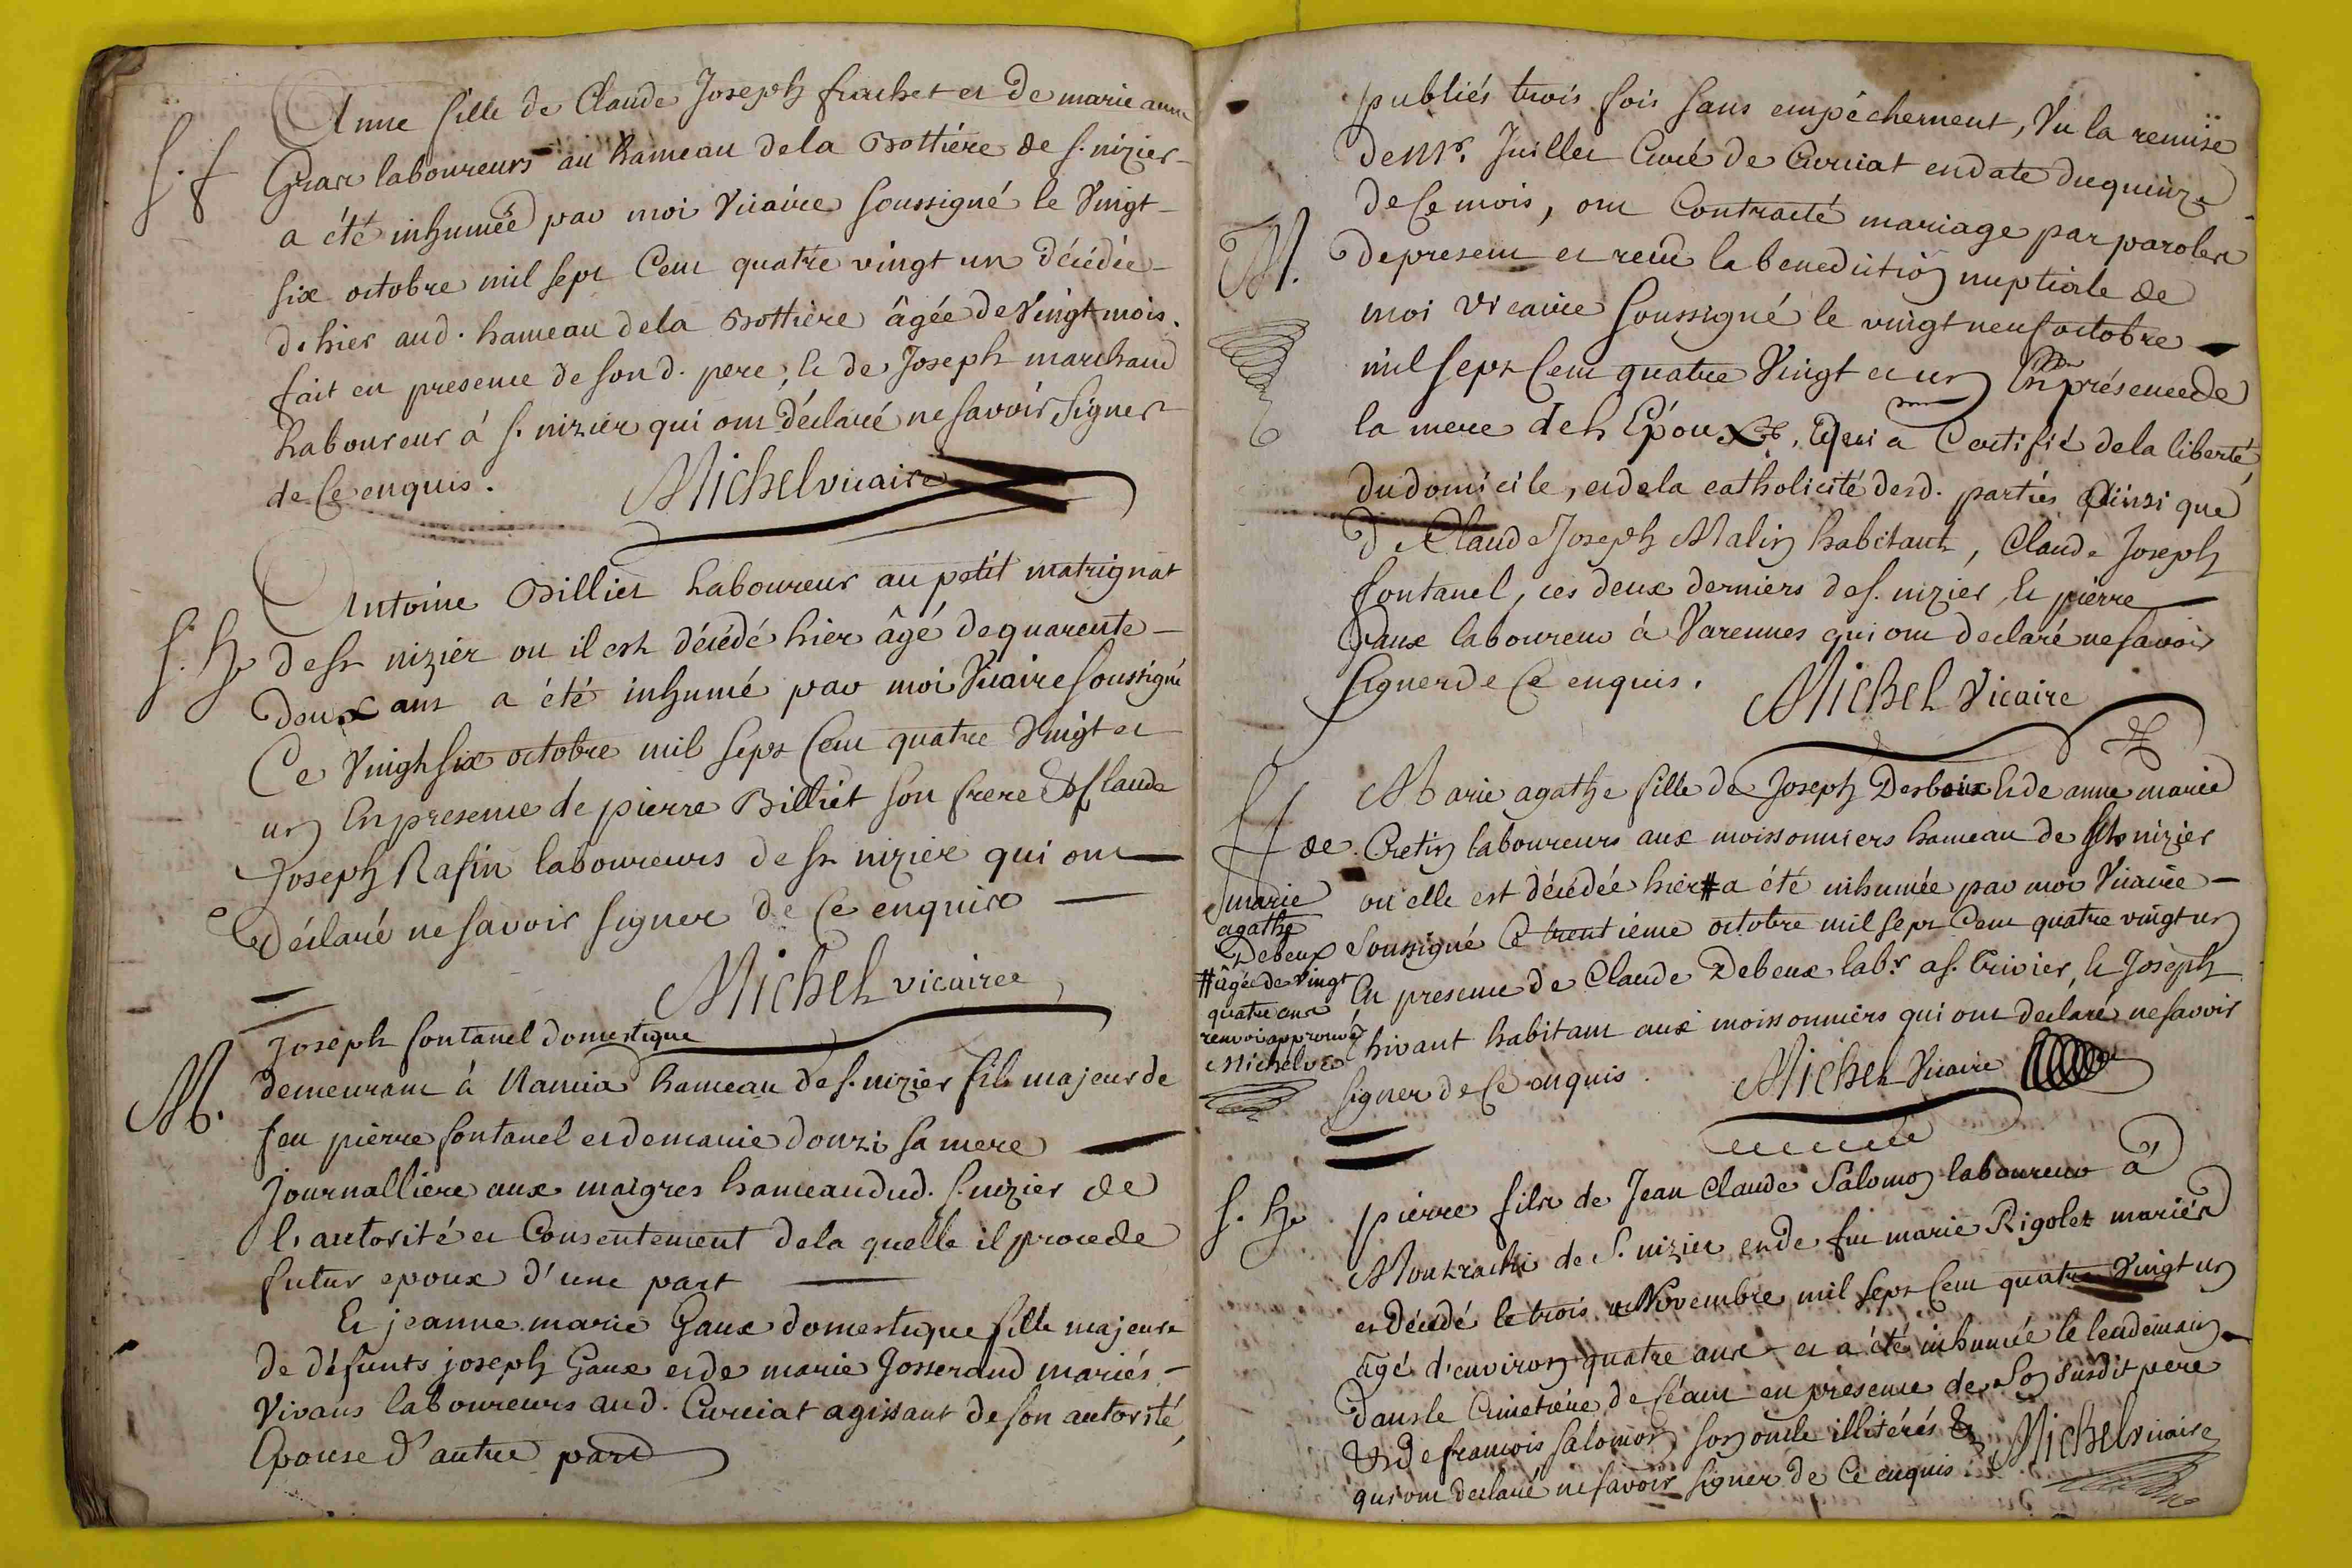 Anne fille de Claude Joseph frachet et de marie anne
S. f
Gras laboureurs au hameau de la Bottiére de S. nizier
a été inhumée par moi Vicaire soussigné le Vingt
six octobre mil sept Cent quatre vingt un décédée
d'hier aud. hameau de la Bottiere âgée de Vingt mois.
fait en presence de son d. pere, & de Joseph marchand
Laboureur à S. nizier qui ont déclaré ne savoir Signer
de Ce enquis. Michel vicaire
Antoine Billiet Laboureur au petit matrignat
S. h.
de St nizier ou il est décédé hier âgé de quarente
deux ans a été inhumé par moi Vicaire soussigné
Ce Vingt six octobre mil sept Cent quatre Vingt et
un En presence de pierre Billiet son frere & Claude
Joseph Rafin laboureurs de St nizier qui ont
déclaré ne savoir signer de Ce enquis
Michel vicaire
Joseph fontanel domestique
M.
demeurant à hameau de S. nizier fils majeur de
feu pierre fontanel et de marie donzi sa mere
Journalliere aux maigres hameau dud. S. nizier de
l'autorité et Consentement de la quelle il procede
futur epoux d'une part
Et jeanne marie Gaux domestique fille majeure
de défunts joseph Gaux et de marie Josserand mariés
Vivans laboureurs aud. Curciat agissant de son autorité,
Epouse d'autre part
publiés trois fois sans empêchement, Vu la remise
de Mr. Juillet Curé de Curciat en date du quinze
de Ce mois, ont Contracté mariage par paroles
M.
de present et recu la benediction nuptiale de
moi vicaire soussigné le vingt neuf octobre
mil sept Cent quatre Vingt et un En présence de
la mere de l'Epoux, qui a Certifié de la liberté,
du domicile, et de la catholicité desd. parties ainsi que
de Claude Joseph Malin habitant, Claude Joseph
fontanel, ces deux derniers de S. nizier, & pierre
Gaux laboureur à Varennes qui ont declaré ne savoir
Signer de Ce enquis. Michel Vicaire
Marie agathe fille de Joseph Desboix & de anne marie
S f
de
marie
agathe
Debeux
Cretin laboureurs aux moissonniers hameau de St nizier
ou elle est décédée hier # a été inhumée par moi Vicaire
Soussigné Ce trentième octobre mil sept Cent quatre vingt un
# âgée de Vingt
quatre ans
renvoi approuvé
Michel vic
En presence de Claude Debeux labr. a S. Trivier, & Joseph
Chivant habitant aux moissonniers qui ont declaré ne savoir
Signer de Ce enquis. Michel Vicaire
S. h.
pierre fils de Jean Claude Salomon laboureur à
de S. nizier et de fue marie Rigolet mariés
est décédé le trois Novembre mil sept Cent quatre Vingt un
âgé d'environ quatre ans et a été inhumée le lendemain
dans le Cimetiére de Céans en presence de Son susdit pere
& de francois salomon son oncle illitérés &
qui ont declaré ne savoir signer de Ce enquis. Michel vicaire